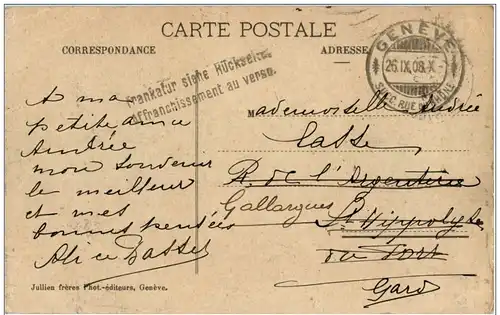 CARTE POSTALE
CORRESPONDANCE
ADRESSE
GENÈVE
26.IX.08.X
Frankatur siehe Rückseite.
Affranchissement au verso.
A ma
petite amie
Andrée
mon souvenir
le meilleur
et mes
bonnes pensées
Mademoiselle Andrée
R. de l'Argenterie
Gallargues
St Hippolyte
du Fort
Gard
Jullien frères Phot.-éditeurs, Genève.